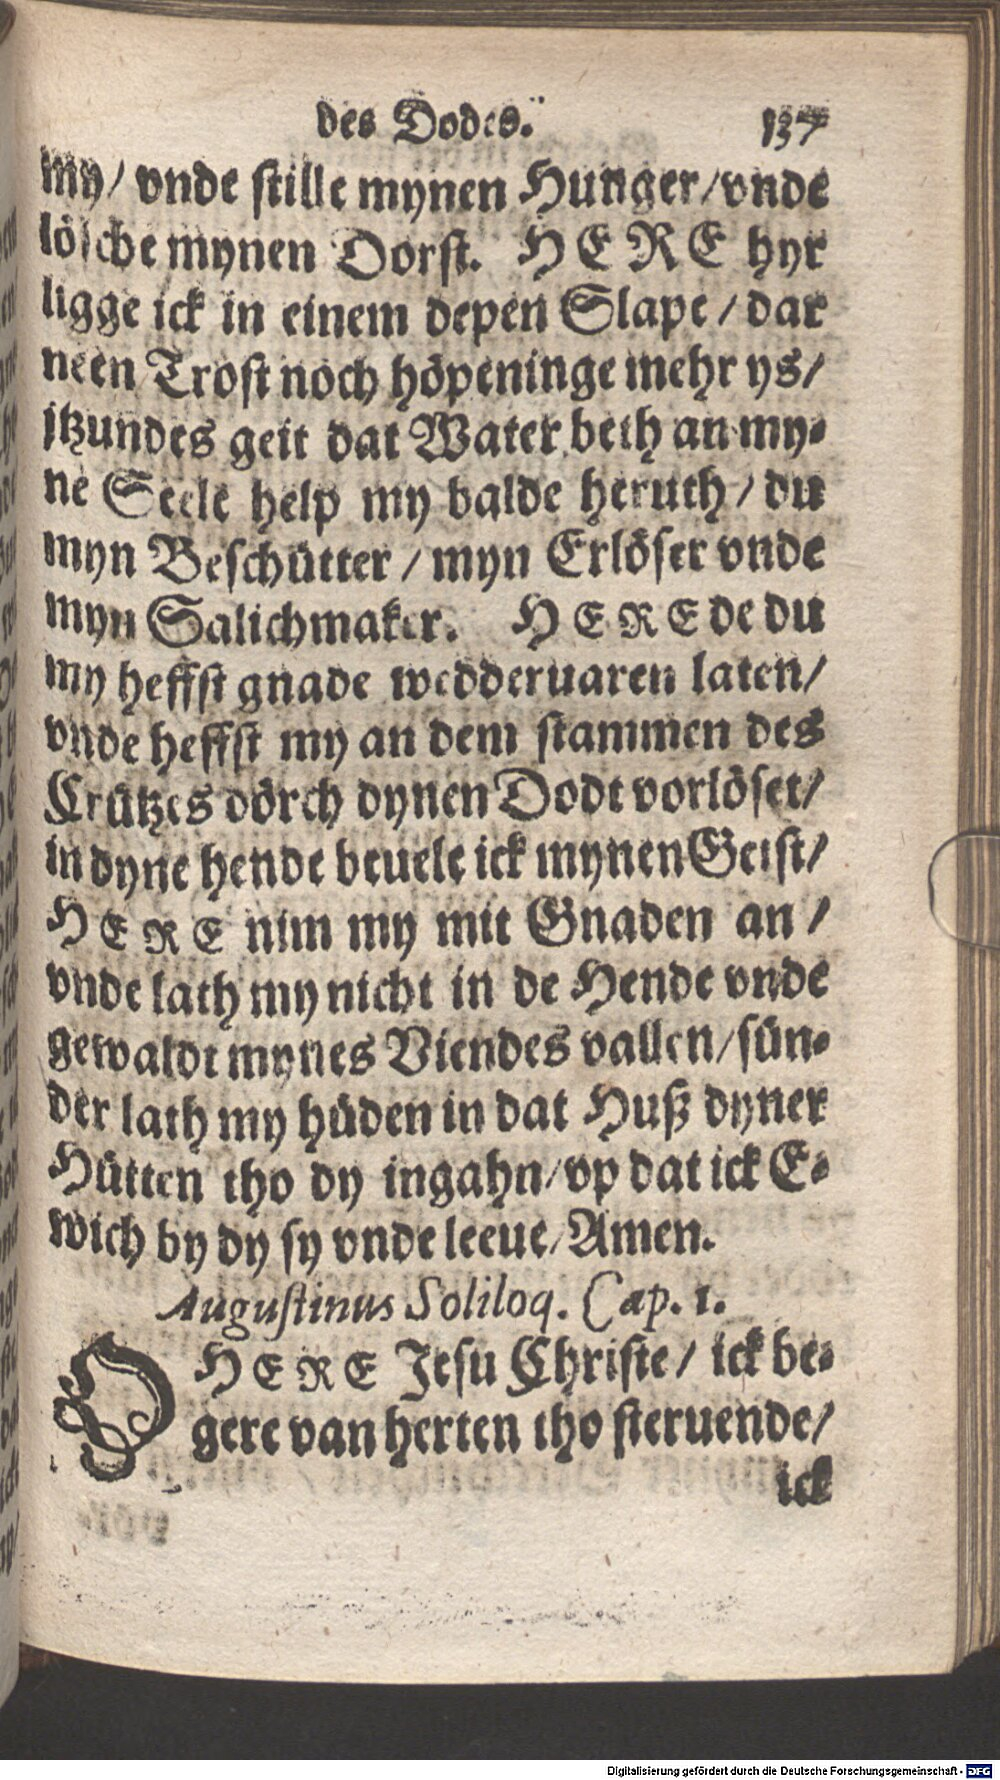 des Dodes. 137
my/ vnde stille mynen Hunger/vnde
lösche mynen Dorst. HERE hyr
ligge ick in einem depen Slape/ dar
neen Trost noch höpeninge mehr ys/
jtzundes geit dat Water beth an my-
ne Seele help my balde heruth/ du
myn Beschütter/ myn Erlöser vnde
myn Salichmaker. HERE de du
my heffst gnade wedderuaren laten/
vnde heffst my an dem stammen des
Crützes dörch dynen Dodt vorlöset/
in dyne hende beuele ick mynen Geist/
HERE nim my mit Gnaden an/
vnde lath my nicht in de Hende vnde
gewaldt mynes Viendes vallen/ sün-
der lath my hüden in dat Huß dyner
Hütten tho dy ingahn/ vp dat ick E-
wich by dy sy vnde leeue/ Amen.
Augustinus Soliloq. Cap. 1.
O HERE Jesu Christe/ ick be-
gere van herten tho steruende/
ick
Digitalisierung gefördert durch die Deutsche Forschungsgemeinschaft - DFG